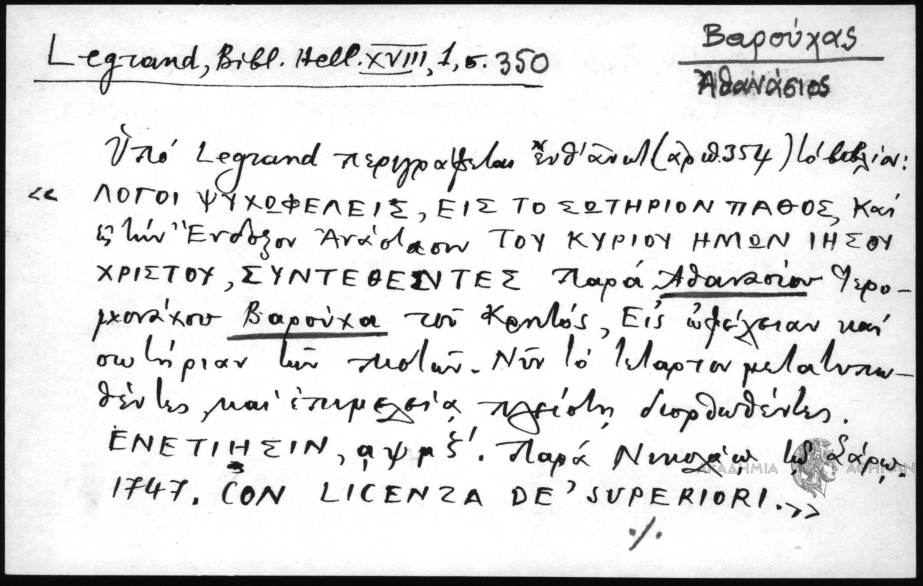 Legrand, Bibl. Hell. XVIII, 1, σ. 350
Βαρούχας
Ἀθανάσιος
Ὑπό Legrand περιγράφεται ἐνθ' ἀνωτ (ἀριθ. 354) τό βιβλίον:
« ΛΟΓΟΙ ΨΥΧΩΦΕΛΕΙΣ, ΕΙΣ ΤΟ ΣΩΤΗΡΙΟΝ ΠΑΘΟΣ, Καί
εἰς τήν Ἔνδοξον Ἀνάστασιν ΤΟΥ ΚΥΡΙΟΥ ΗΜΩΝ ΙΗΣΟΥ
ΧΡΙΣΤΟΥ, ΣΥΝΤΕΘΕΝΤΕΣ Παρά Ἀθανασίου Ἱερο-
μονάχου Βαρούχα τοῦ Κρητός, Εἰς ὠφέλειαν καί
σωτηρίαν τῶν πιστῶν. Νῦν τό τέταρτον μετατυπω-
θέντες, καί ἐπιμελείᾳ πλείστῃ διορθωθέντες.
ΕΝΕΤΙΗΣΙΝ, αψμζ΄. Παρά Νικολάῳ τῷ Σάρῳ
1747. CON LICENZA DE' SUPERIORI.»
./.
ΑΚΑΔΗΜΙΑ ΑΘΗΝΩΝ